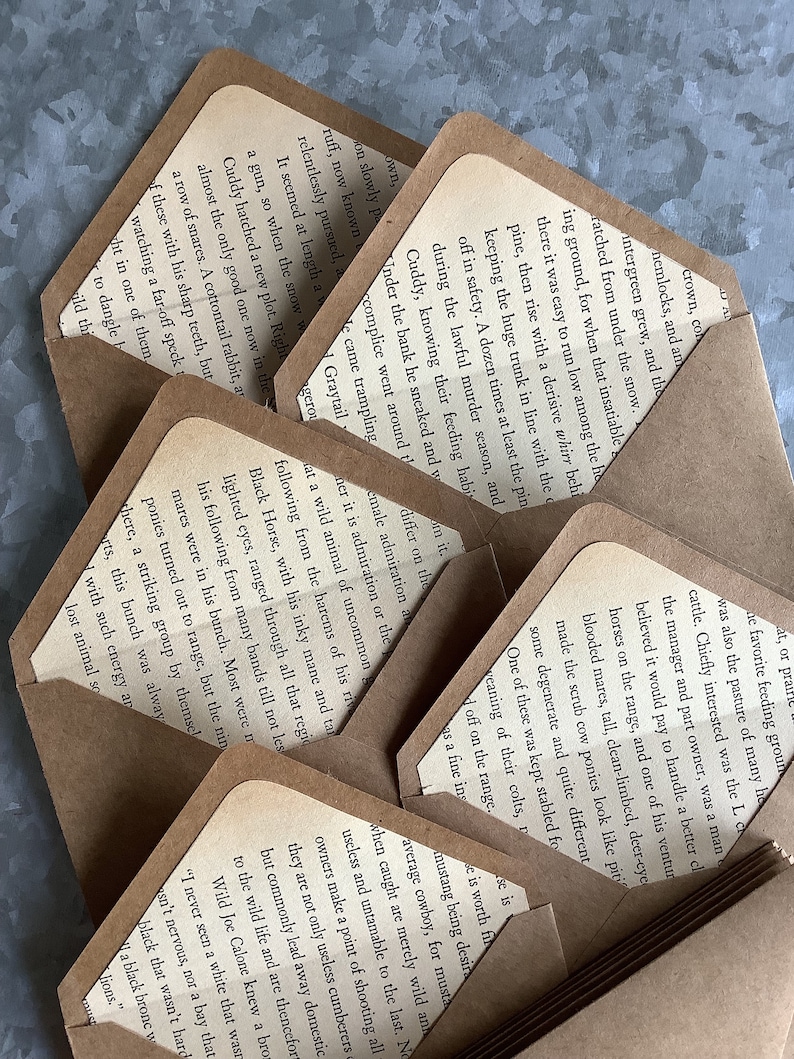 own,
on slowly p
ruff, now known
relentlessly pursued, a
It seemed at length a w
a gun, so when the snow
Cuddy hatched a new plot. Right
almost the only good one now in the
a row of snares. A cottontail rabbit, an
f these with his sharp teeth, but
watching a far-off speck
ght in one of them
to dangle
ild th
crown, co
hemlocks, and am
intergreen grew, and th
atched from under the snow.
ing ground, for when that insatiable
there it was easy to run low among the h
pine, then rise with a derisive whirr behi
keeping the huge trunk in line with the
off in safety. A dozen times at least the pin
during the lawful murder season, and
Cuddy, knowing their feeding habi
Under the bank he sneaked and w
ccomplice went around t
e came trampling
d Graytail
gerou
n it.
differ on the
emale admiration a
her it is admiration or the
at a wild animal of uncommon
following from the harems of his riv
Black Horse, with his inky mane and tai
lighted eyes, ranged through all that regi
his following from many bands till not less
mares were in his bunch. Most were m
ponies turned out to range, but the nin
there, a striking group by themsel
rts, this bunch was alway
with such energy an
lost animal so
at, or prairie
e favorite feeding groun
was also the pasture of many he
cattle. Chiefly interested was the L cr
the manager and part owner, was a man
believed it would pay to handle a better cl
horses on the range, and one of his ventur
blooded mares, tall, clean-limbed, deer-eye
made the scrub cow ponies look like piti
some degenerate and quite different
One of these was kept stabled fo
weaning of their colts, m
d off on the range.
as a fine ins
se is
e is worth fi
mustang being desir
average cowboy, for musta
when caught are merely wild and
useless and untamable to the last. No
owners make a point of shooting all
they are not only useless cumberers
but commonly lead away domestic
to the wild life and are thencefort
Wild Joe Calone knew a bro
“I never seen a white that w
sn’t nervous, nor a bay that
black that wasn’t hard
ll a black bronc w
lions.”